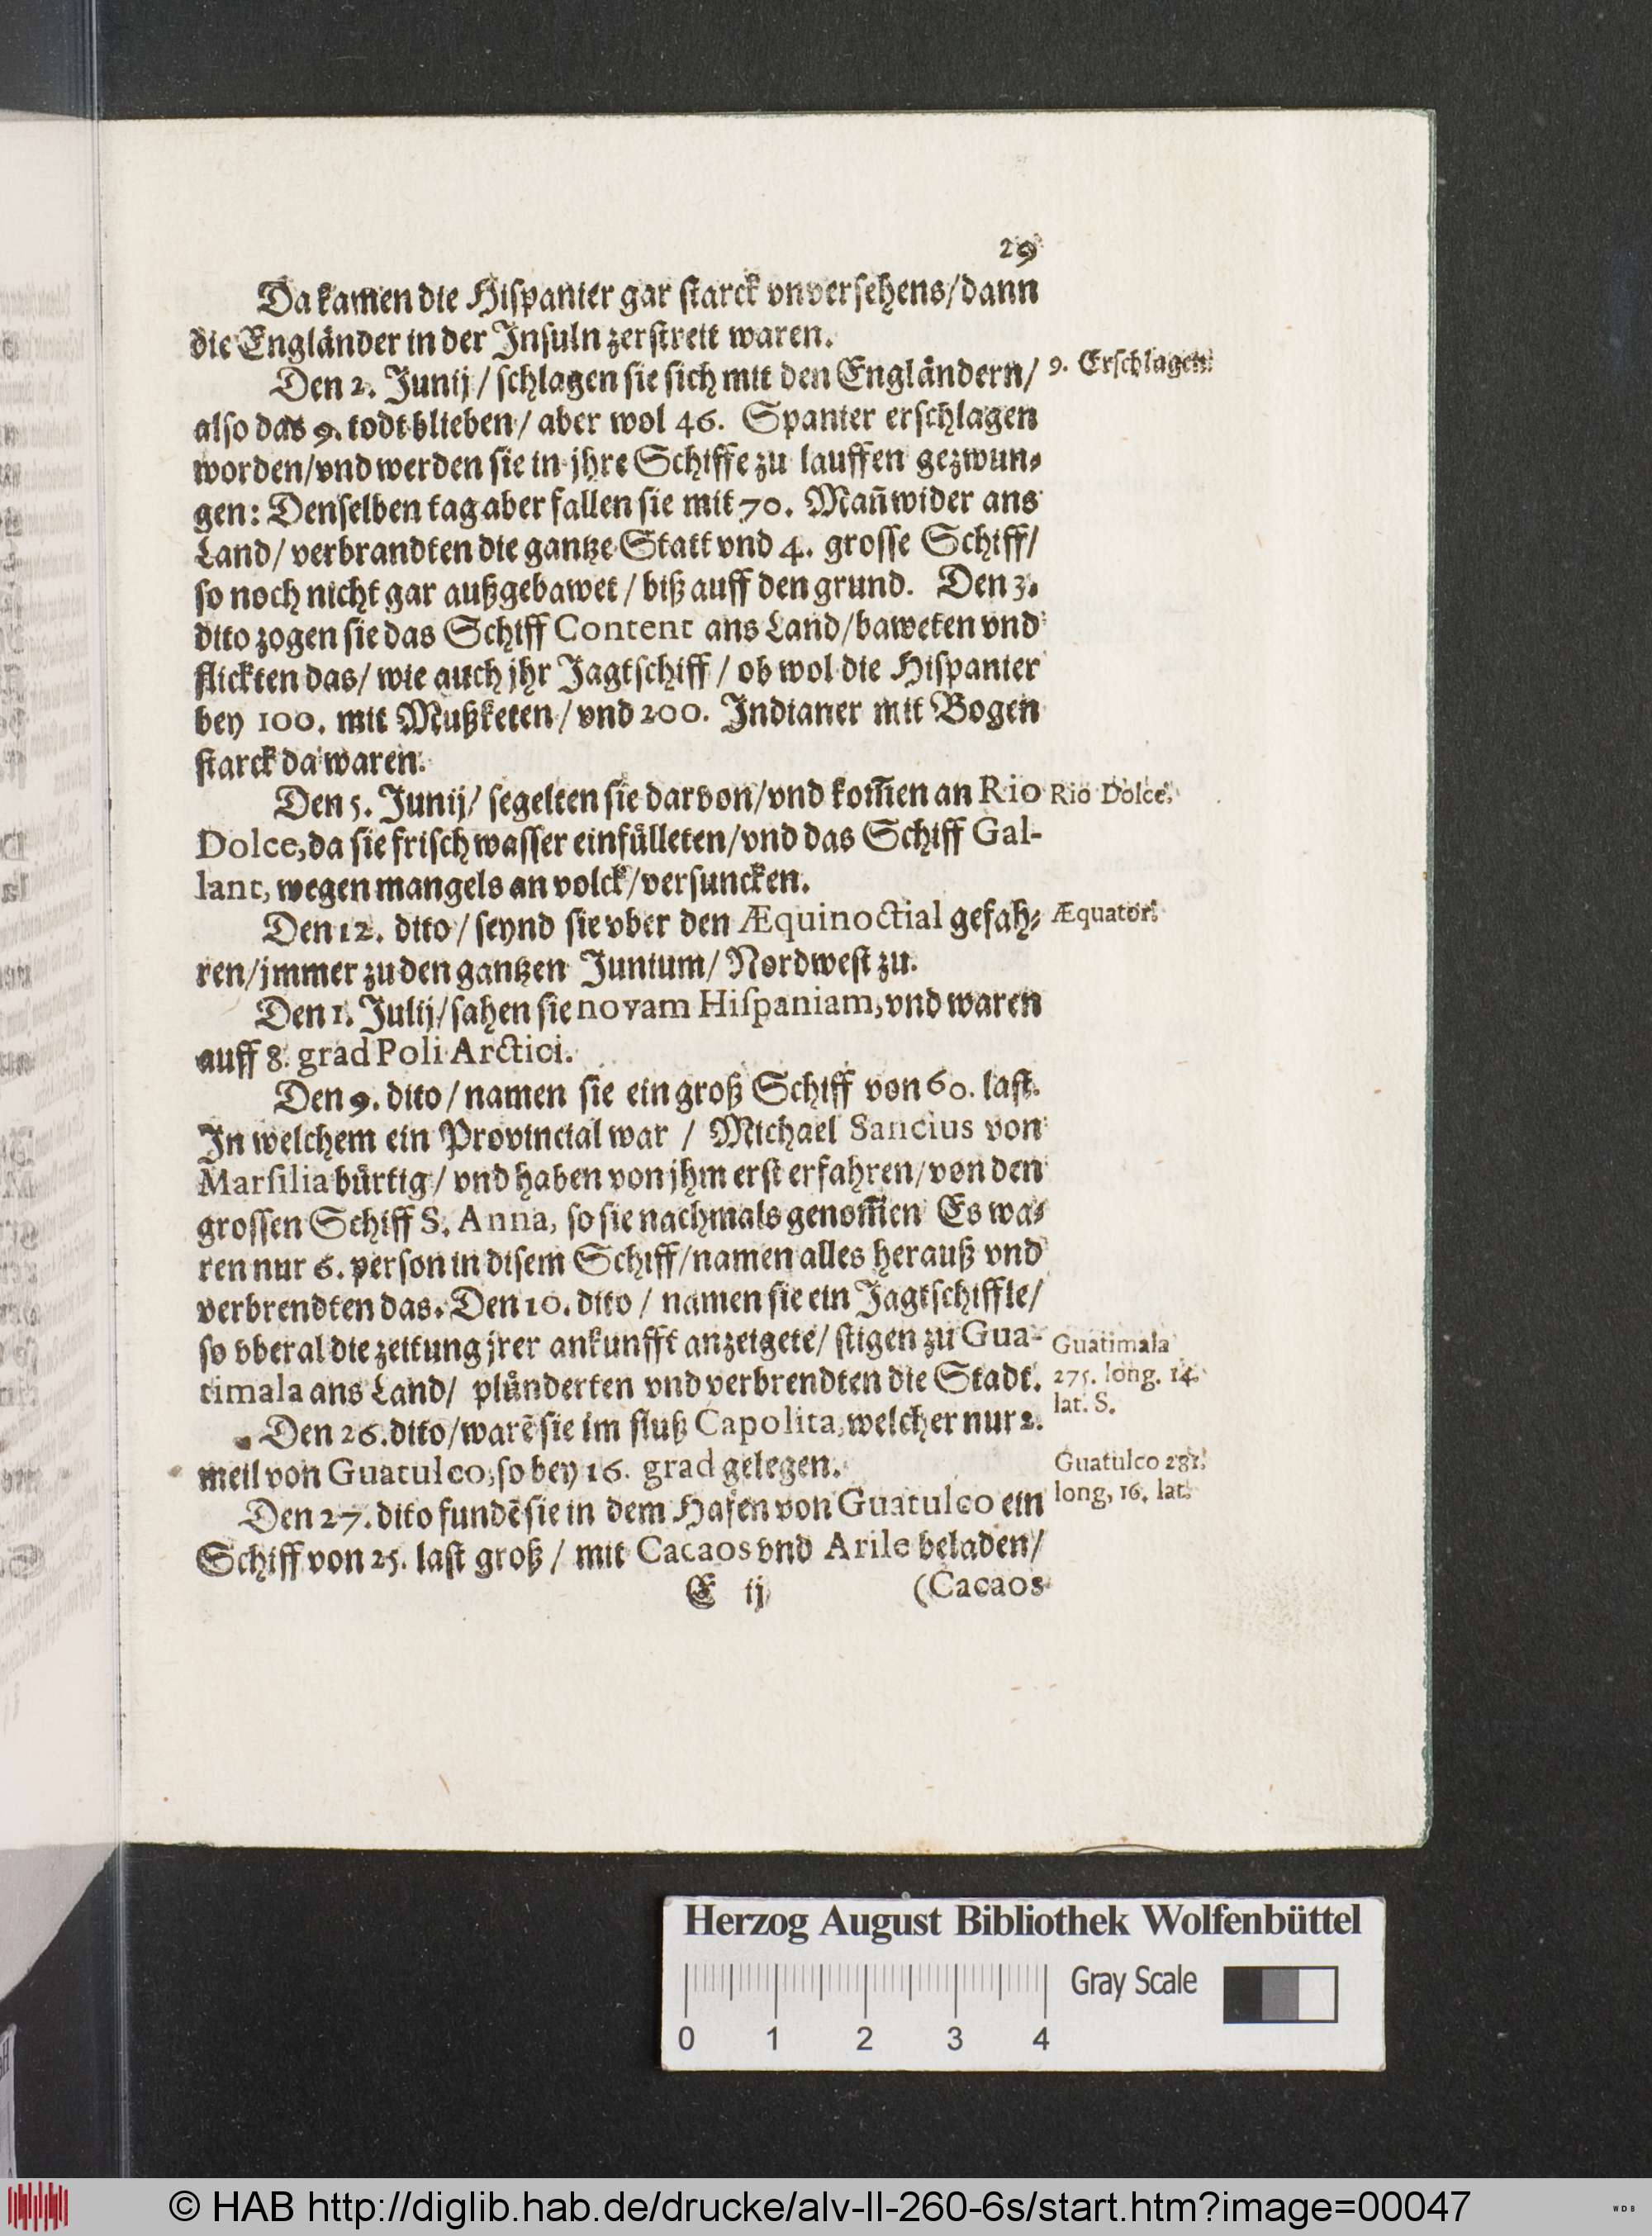 29
Da kamen die Hiſpanier gar ſtarck vnverſehens/dann
die Engländer in der Inſuln zerſtreit waren.
Den 2. Junij/ ſchlagen ſie ſich mit den Engländern/
9. Erſchlagen.
alſo das 9. todt blieben/ aber wol 46. Spanier erſchlagen
worden/vnd werden ſie in jhre Schiffe zu lauffen gezwun⸗
gen: Denſelben tag aber fallen ſie mit 70. Mañ wider ans
Land/ verbrandten die gantze Statt vnd 4. groſſe Schiff/
ſo noch nicht gar außgebawet/ biß auff den grund. Den 3.
dito zogen ſie das Schiff Content ans Land/baweten vnd
flickten das/ wie auch jhr Jagtſchiff/ ob wol die Hiſpanier
bey 100. mit Mußketen/ vnd 200. Indianer mit Bogen
ſtarck da waren.
Den 5. Junij/ ſegelten ſie darvon/vnd kom̃en an Rio
Rio Dolce.
Dolce, da ſie friſch waſſer einfuͤlleten/vnd das Schiff Gal-
lant, wegen mangels an volck/verſuncken.
Den 12. dito/ ſeynd ſie vber den Æquinoctial gefah⸗
Æquator.
ren/jmmer zu den gantzen Junium/ Nordweſt zu.
Den 1. Julij/ſahen ſie novam Hiſpaniam, vnd waren
auff 8. grad Poli Arctici.
Den 9. dito/ namen ſie ein groß Schiff von 60. laſt.
In welchem ein Provincial war/ Michael Sancius von
Marſilia buͤrtig/ vnd haben von jhm erſt erfahren/von den
groſſen Schiff S. Anna, ſo ſie nachmals genom̃en Es wa⸗
ren nur 6. perſon in diſem Schiff/namen alles herauß vnd
verbrendten das. Den 10. dito/ namen ſie ein Jagtſchiffle/
ſo vberal die zeitung jrer ankunfft anzeigete/ ſtigen zu Gua-
timala ans Land/ pluͤnderten vnd verbrendten die Stadt.
Guatimala
275. long. 14.
lat. S.
Den 26. dito/warẽ ſie im fluß Capolita, welcher nur 2.
meil von Guatulco, ſo bey 16. grad gelegen.
Guatulco 281.
long, 16. lat.
Den 27. dito fundẽ ſie in dem Hafen von Guatulco ein
Schiff von 25. laſt groß/ mit Cacaos vnd Arile beladen/
E ij
(Cacaos
Herzog August Bibliothek Wolfenbüttel
Gray Scale
0 1 2 3 4
© HAB http://diglib.hab.de/drucke/alv-II-260-6s/start.htm?image=00047
WDB